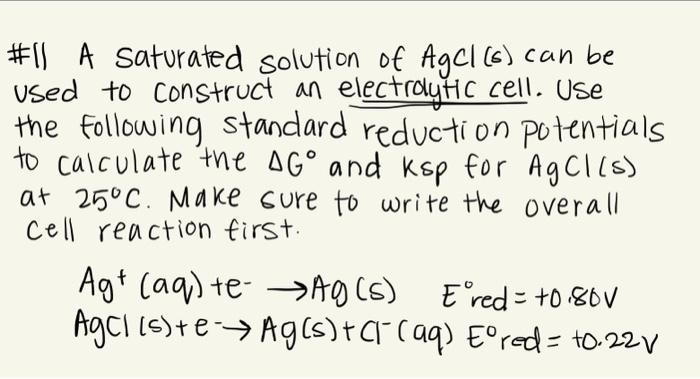 #11 A saturated solution of AgCl(s) can be
used to construct an electrolytic cell. Use
the following standard reduction potentials
to calculate the ΔG° and ksp for AgCl(s)
at 25°C. Make sure to write the overall
cell reaction first.
Ag⁺ (aq) +e⁻ → Ag (s) E°red = +0.80V
AgCl (s)+e⁻→ Ag(s)+Cl⁻(aq) E°red = +0.22V